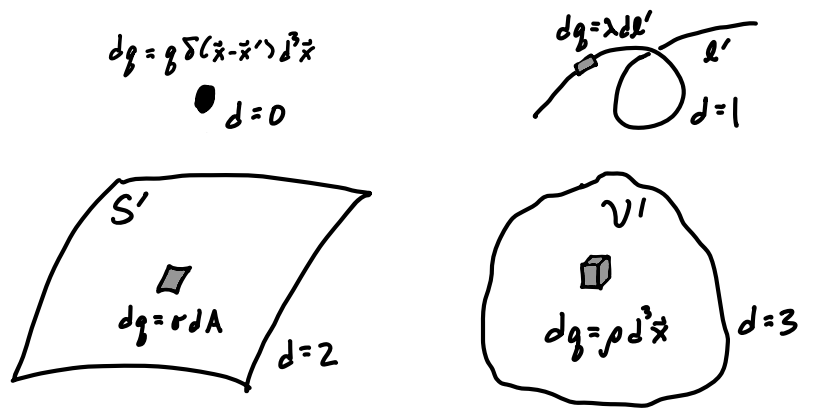 dq = q δ(x⃗-x⃗′) d³x⃗
d=0
dq=λdl′
l′
d=1
S′
dq=σdA
d=2
V′
dq=ρd³x⃗
d=3